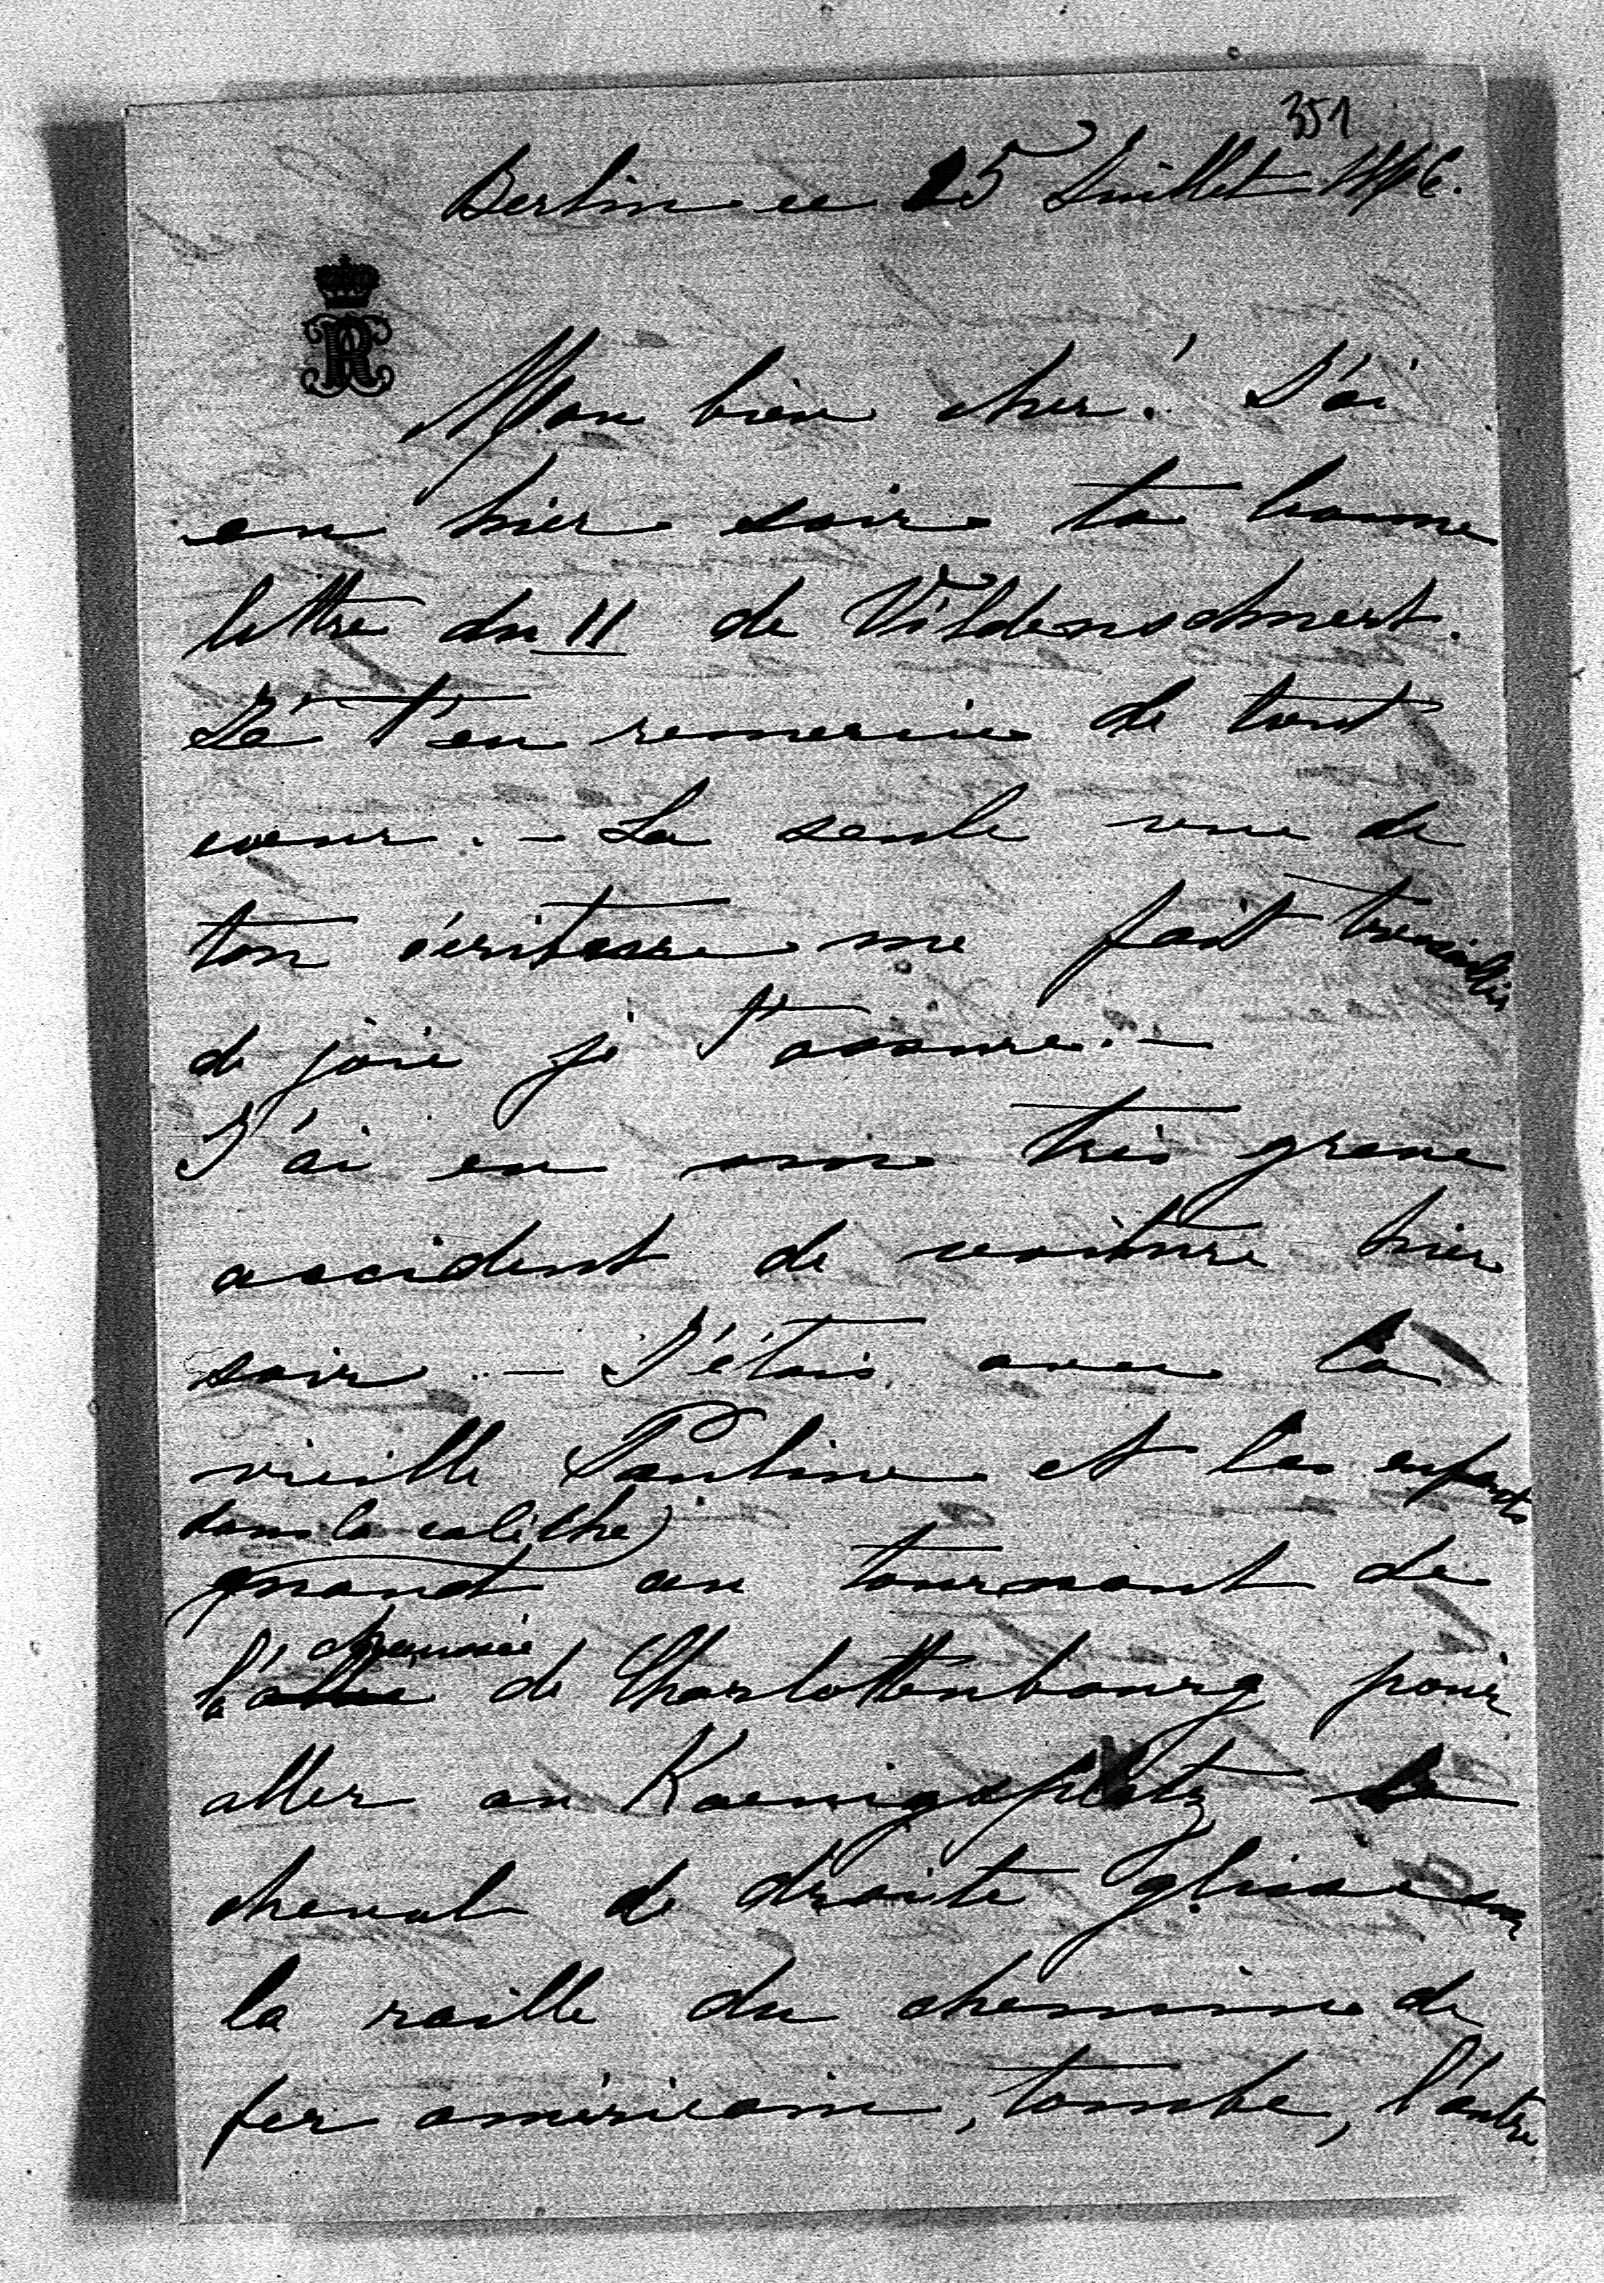 351
Berlin ce 25 Juillet 1866.
Mon bien cher! J'ai
eu hier soir ta bonne
lettre du 11 de Vildenschwert.
Je t'en remercie de tout
coeur. — La seule vue de
ton écriture me fait tressaillir
de joie je t'assure. —
J'ai eu un très grave
accident de voiture hier
soir. — J'étais avec la
vieille Pauline et les enfants
dans la calèche
quand au tournant de
chaussée
la de Charlottenbourg pour
aller au Koenigsplatz le
cheval de droite glisse sur
la raille du chemin de
fer américain, tombe, l'autre